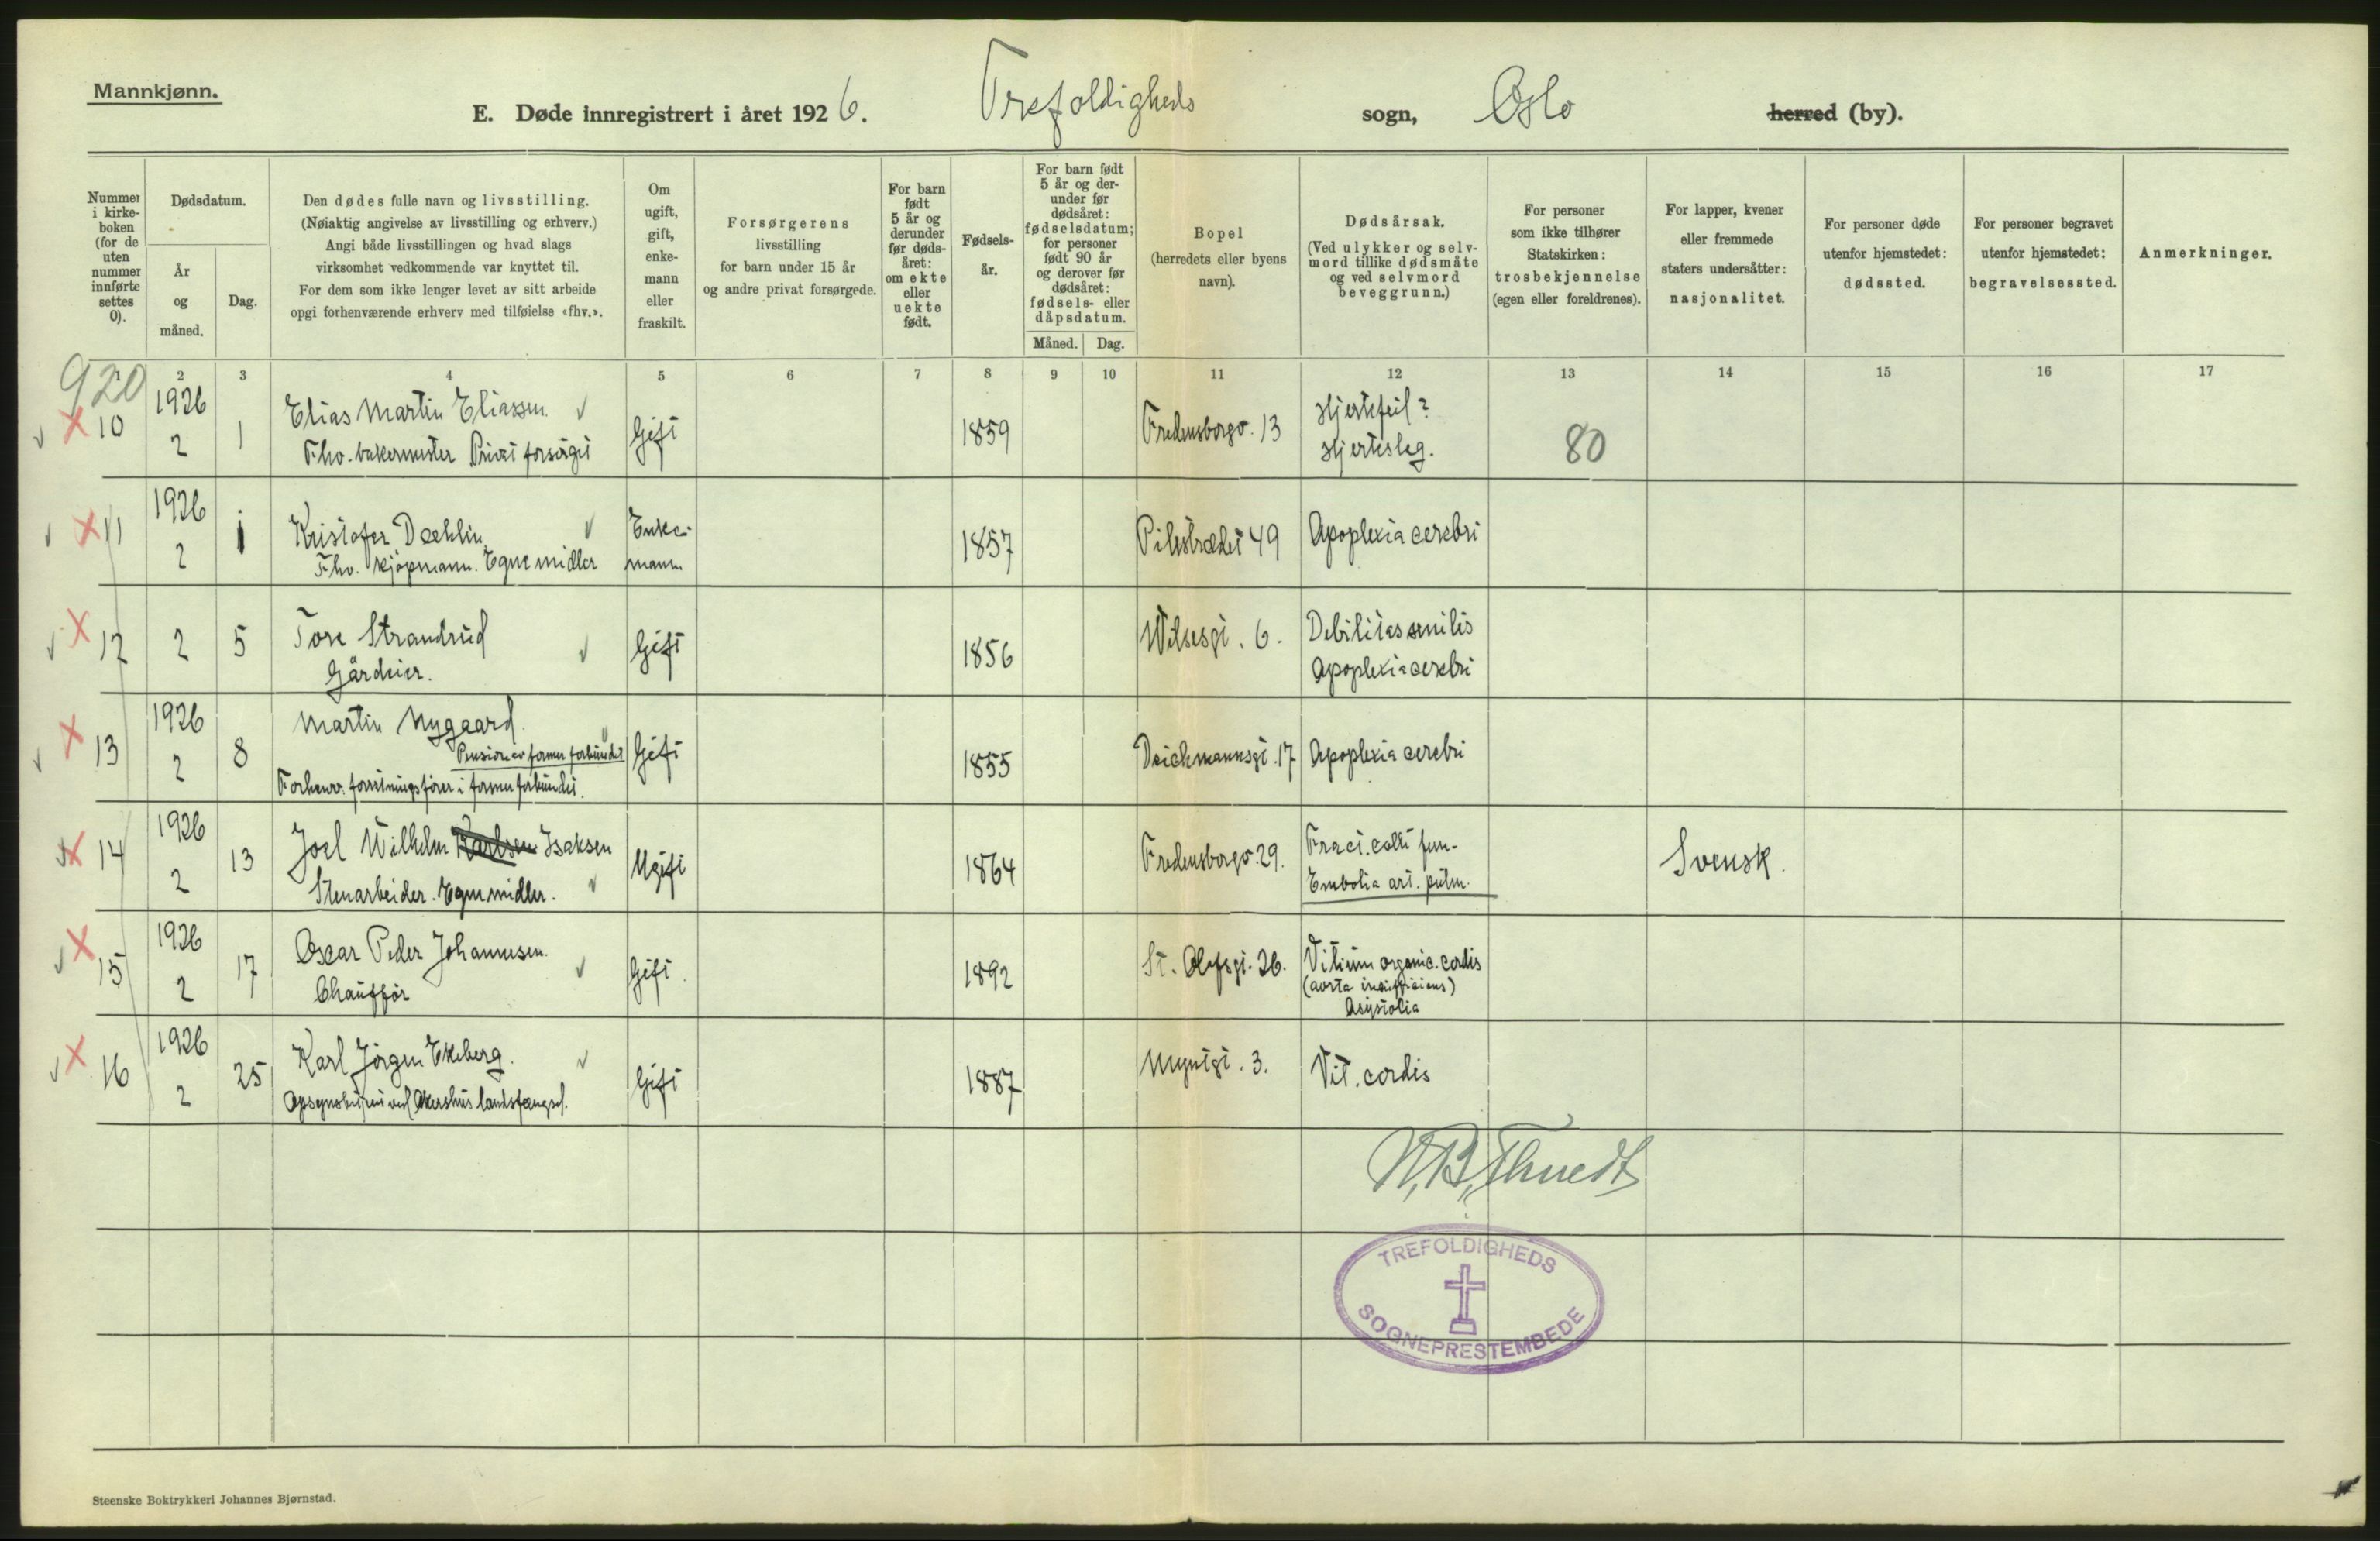 Mannkjønn.
E. Døde innregistrert i året 1926. Trefoldigheds sogn, Oslo herred (by).
Nummer i kirke-boken (for de uten nummer innførte settes 0).
Dødsdatum.
År og måned.
Dag.
Den dødes fulle navn og livsstilling.
(Nøiaktig angivelse av livsstilling og erhverv.)
Angi både livsstillingen og hvad slags
virksomhet vedkommende var knyttet til.
For dem som ikke lenger levet av sitt arbeide
opgi forhenværende erhverv med tilføielse «fhv.».
Om ugift, gift, enke-mann eller fraskilt.
Forsørgerens
livsstilling
for barn under 15 år
og andre privat forsørgede.
For barn født 5 år og derunder før døds-året: om ekte eller uekte født.
Fødsels-år.
For barn født 5 år og der-under før dødsåret: fødselsdatum; for personer født 90 år og derover før dødsåret: fødsels- eller dåpsdatum.
Måned. Dag.
Bopel
(herredets eller byens
navn).
Dødsårsak.
(Ved ulykker og selv-
mord tillike dødsmåte
og ved selvmord
beveggrunn.)
For personer
som ikke tilhører
Statskirken:
trosbekjennelse
(egen eller foreldrenes).
For lapper, kvener
eller fremmede
staters undersåtter:
nasjonalitet.
For personer døde
utenfor hjemstedet:
dødssted.
For personer begravet
utenfor hjemstedet:
begravelsessted.
Anmerkninger.
1 2 3 4 5 6 7 8 9 10 11 12 13 14 15 16 17
920
10 1926 2 1 Elias Martin Eliassen Gift 1859 Fredensborgv. 13 Hjertefeil?
Fhv. bakermester Privat forsørget Hjerteslag. 80
11 1926 2 1 Kristofer Dæhlin Enke-mann 1857 Pilestrædet 49 Apoplexia cerebri
Fhv. kjøpmann. Egne midler
12 2 5 Tore Strandrud Gift 1856 Wilsesgt. 6. Debilitas senilis
Gårdeier. Apoplexia cerebri
13 1926 2 8 Martin Nygaard. Gift 1855 Deichmannsgt. 17 Apoplexia cerebri
Pension av former forbundet
Forhenv. forretningsfører i former forbundet.
14 1926 2 13 Joel Wilhelm Karlsen Isaksen Ugift 1864 Fredensborgv. 29. Fract. colli fem- Svensk.
Stenarbeider. Egne midler. Embolia art. pulm.
15 1926 2 17 Oscar Peder Johannesen. Gift. 1892 St. Olafsgt. 26. Vitium organic. cordis
Chauffør (aorta insufficiens)
Asystolia
16 1926 2 25 Karl Jørgen Ekeberg. Gift 1887 Myntgt. 3. Vit. cordis
Opsynsbetjent ved Akershus landsfængsel.
TREFOLDIGHEDS
SOGNEPRESTEMBEDE
Steenske Boktrykkeri Johannes Bjørnstad.